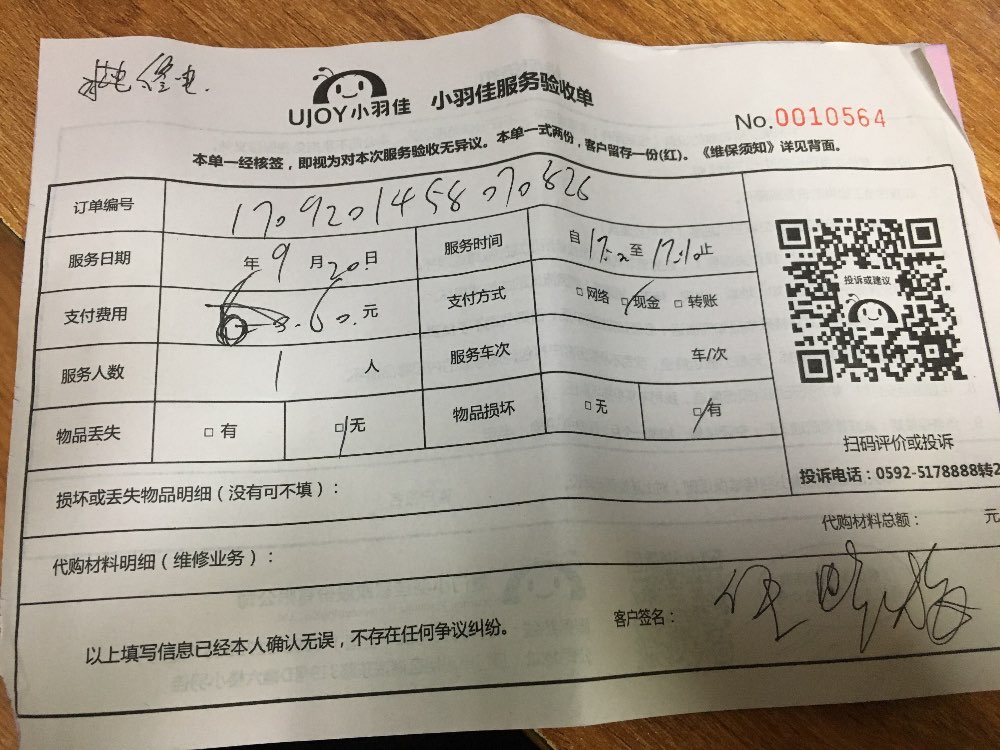 UJOY小羽佳 小羽佳服务验收单
No.0010564
本单一经核签，即视为对本次服务验收无异议。本单一式两份，客户留存一份(红)。《维保须知》详见背面。
订单编号 1709201458070826
服务日期 年 9 月 20 日 服务时间 自 至 止
支付费用 元 支付方式 □网络 □现金 □转账
服务人数 1 人 服务车次 车/次
物品丢失 □ 有 □无 物品损坏 □无 □有
投诉或建议
扫码评价或投诉
投诉电话：0592-5178888转2
损坏或丢失物品明细（没有可不填）：
代购材料总额： 元
代购材料明细（维修业务）：
以上填写信息已经本人确认无误，不存在任何争议纠纷。 客户签名：